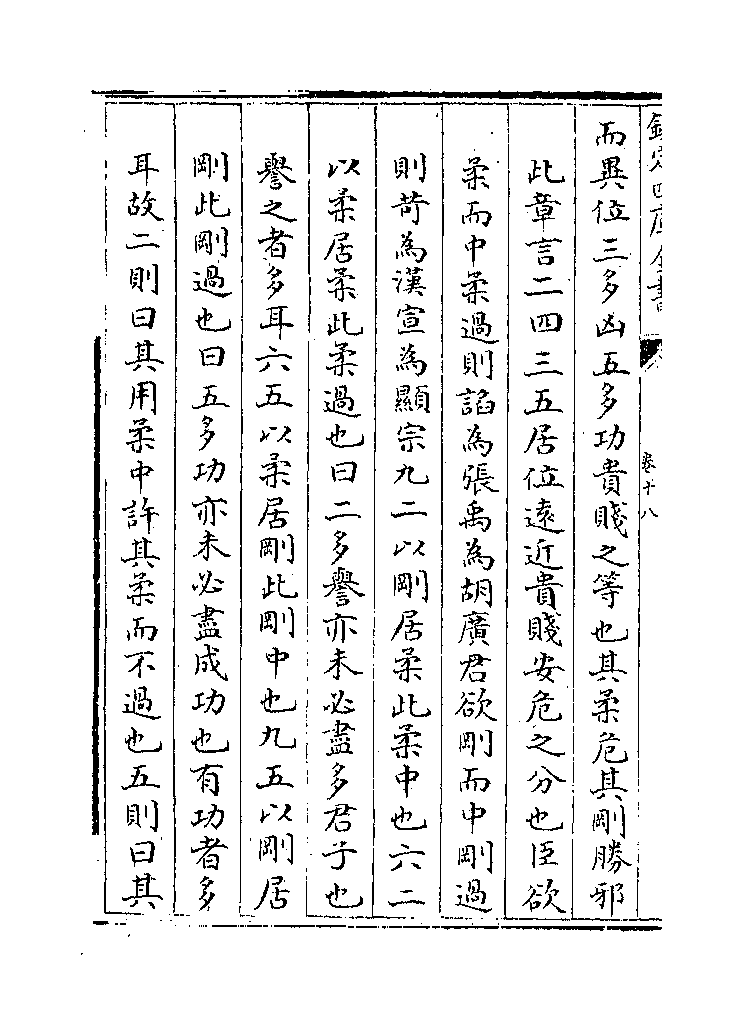 欽定四庫全書
卷十八
而異位三多凶五多功貴賤之等也其柔危其剛勝邪
此章言二四三五居位遠近貴賤安危之分也臣欲
柔而中柔過則諂為張禹為胡廣君欲剛而中剛過
則苛為漢宣為顯宗九二以剛居柔此柔中也六二
以柔居柔此柔過也曰二多譽亦未必盡多君子也
譽之者多耳六五以柔居剛此剛中也九五以剛居
剛此剛過也曰五多功亦未必盡成功也有功者多
耳故二則曰其用柔中許其柔而不過也五則曰其